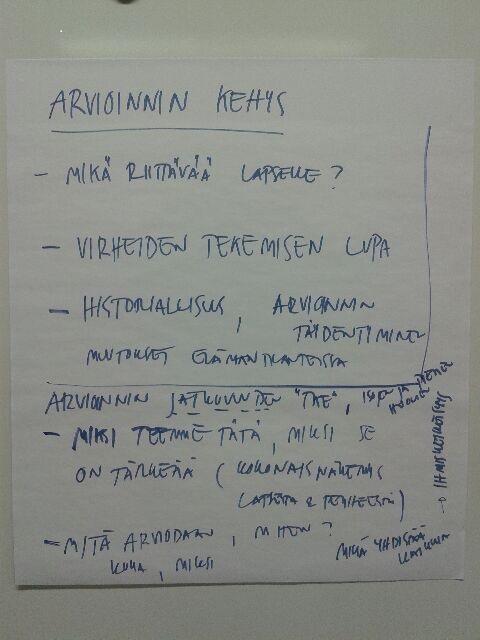 ARVIOINNIN KEHYS
- MIKÄ RIITTÄVÄÄ LAPSELLE?
- VIRHEIDEN TEKEMISEN LUPA
- HISTORIALLISUUS, ARVIOINNIN
TÄYDENTYMINEN
MUTOKSET ELÄMÄNTILANTEISSA
ARVIOINNIN JATKUVUUDEN "TAE",
- MIKSI TEEMME TÄTÄ, MIKSI SE
ON TÄRKEÄÄ (KOKONAISNÄKEMYS
LAPSESTA & PERHEESTÄ)
- MITÄ ARVIODAAN, MITEN?
KUKA, MIKSI
MIKÄ YHDISTÄÄ
KAIKKIA
→ IHMISKÄSITYS